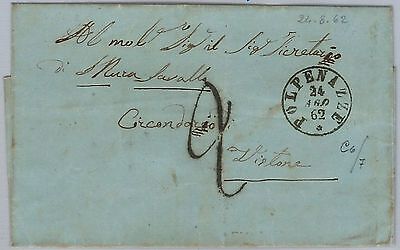 24.8.62
Al molto Sig. il Sig. Segretario
di
POLPENAZZE
24
AGO
62
Circondario di
Vestone
2
C6/7